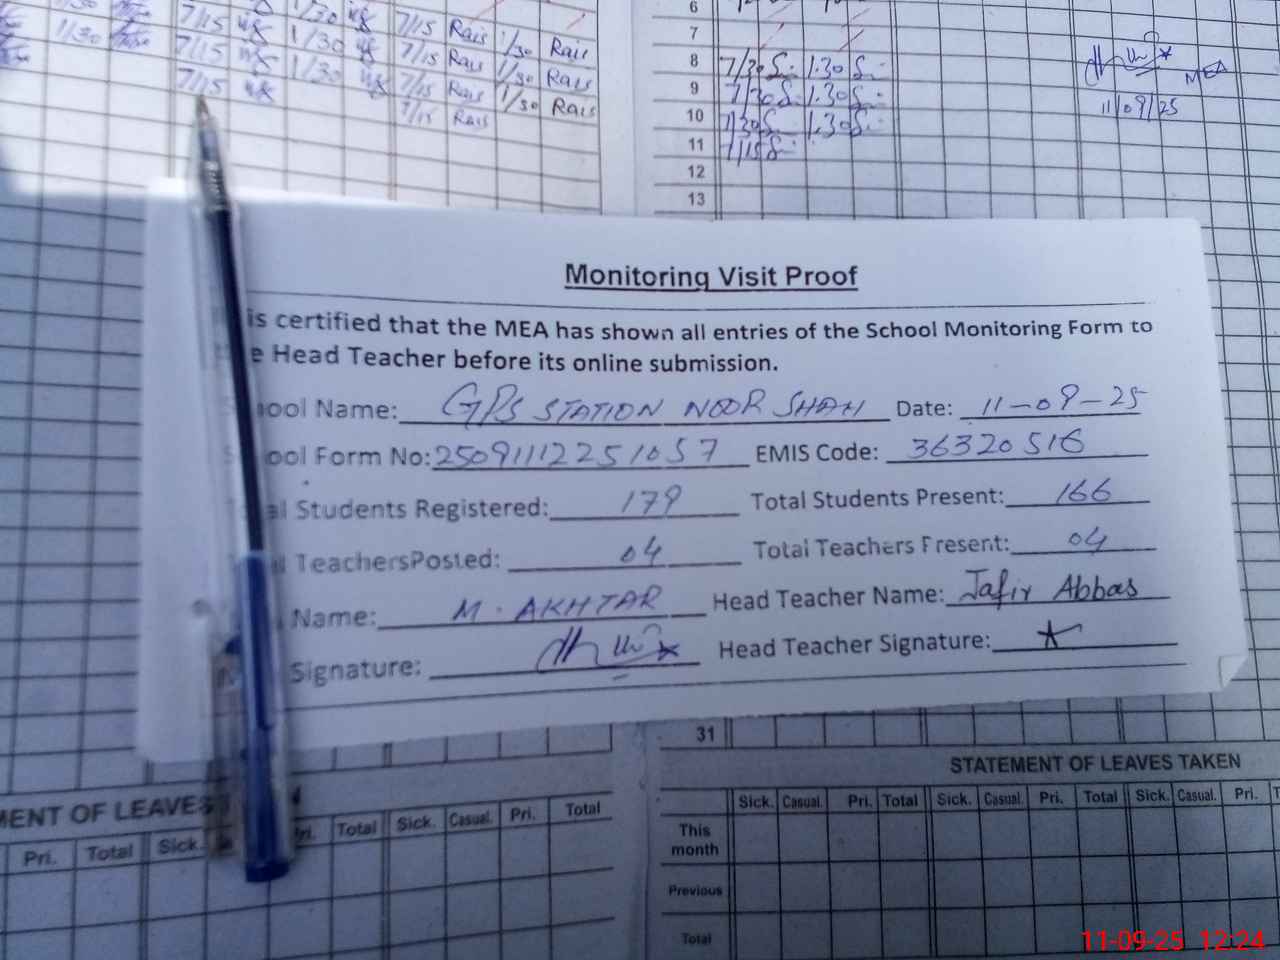 7/15 1/30 7/15 Rais 1/30 Rais
7/15 1/30 7/15 Rais 1/30 Rais
7/15 7/15 Rais 1/30 Rais
7/15 Rais
6
7
8 7/30 1.30
9 7/30 1.30
10 7/30 1.30
11 7/15
12
13
MEA
11/09/25
Monitoring Visit Proof
is certified that the MEA has shown all entries of the School Monitoring Form to
e Head Teacher before its online submission.
ool Name: GPS STATION NOOR SHAH Date: 11-09-25
ool Form No: 25091112251057 EMIS Code: 36320516
al Students Registered: 179 Total Students Present: 166
TeachersPosted: 04 Total Teachers Present: 04
Name: M. AKHTAR Head Teacher Name: Jafir Abbas
Signature: Head Teacher Signature:
31
MENT OF LEAVES
STATEMENT OF LEAVES TAKEN
Pri. Total Sick. Pri. Total Sick. Casual. Pri. Total
Sick. Casual. Pri. Total Sick. Casual. Pri. Total Sick. Casual. Pri.
This month
Previous
Total
11-09-25 12:24